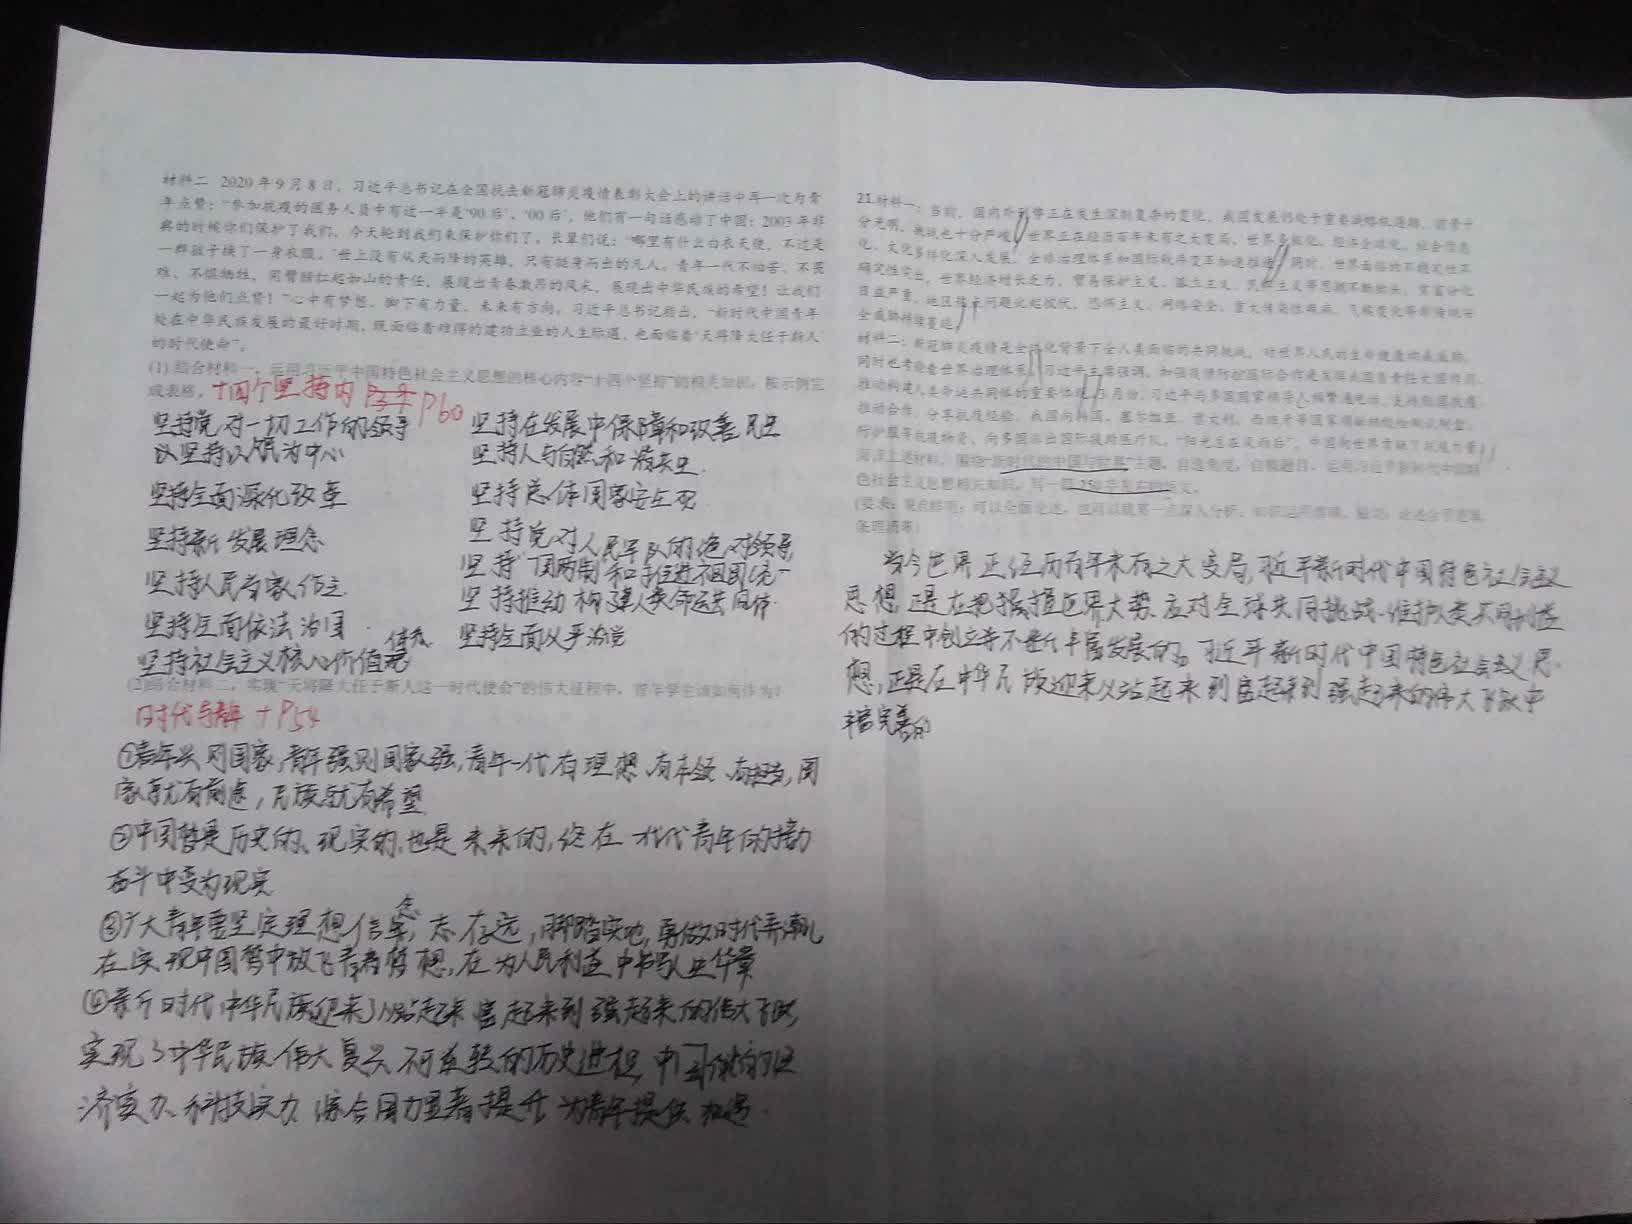 材料二 2020年9月8日，习近平总书记在全国抗击新冠肺炎疫情表彰大会上的讲话中再一次为青
年点赞：“参加抗疫的医务人员中有近一半是‘90后’、‘00后’，他们有一句话感动了中国：2003年非
典的时候你们保护了我们，今天轮到我们来保护你们了。长辈们说：‘哪里有什么白衣天使，不过是
一群孩子换了一身衣服。’世上没有从天而降的英雄，只有挺身而出的凡人。青年一代不怕苦、不畏
难、不惧牺牲，用臂膀扛起如山的责任，展现出青春激昂的风采，展现出中华民族的希望！让我们
一起为他们点赞！”心中有梦想，脚下有力量，未来有方向。习近平总书记指出，“新时代中国青年
处在中华民族发展的最好时期，既面临着难得的建功立业的人生际遇，也面临着‘天将降大任于斯人’
的时代使命”。
(1) 结合材料一，运用习近平中国特色社会主义思想的核心内容“十四个坚持”的相关知识，按示例完
成表格。十四个坚持内 P60
坚持党对一切工作的领导
坚持以人民为中心
坚持全面深化改革
坚持新发展理念
坚持人民当家作主
坚持全面依法治国
坚持社会主义核心价值体系
坚持在发展中保障和改善民生
坚持人与自然和谐共生
坚持总体国家安全观
坚持党对人民军队的绝对领导
坚持“一国两制”和推进祖国统一
坚持推动构建人类命运共同体
坚持全面从严治党
(2)结合材料二，实现“天将降大任于斯人这一时代使命”的伟大征程中，青年学生该如何作为？
时代与青年 + P54
①青年兴则国家，青年强则国家强，青年一代有理想、有本领、有担当，国
家就有前途，民族就有希望
②中国梦是历史的、现实的，也是未来的，终在一代代青年的接力
奋斗中变为现实
③广大青年要坚定理想信念，志存远，脚踏实地，勇做时代弄潮儿
在实现中国梦中放飞青春梦想，在为人民利益中书写人生华章
实现了中华民族伟大复兴不可逆转的历史进程，中国
济实力、科技实力、综合国力显著提升 为青年提供机遇
21.材料一：当前，国内外形势正在发生深刻复杂的变化，我国发展仍处于重要战略机遇期，前景十
分光明，挑战也十分严峻。世界正在经历百年未有之大变局，世界多极化、经济全球化、社会信息
化、文化多样化深入发展，全球治理体系和国际秩序变革加速推进。同时，世界面临的不稳定性不
确定性突出，世界经济增长乏力，贸易保护主义、孤立主义、民粹主义等思潮不断抬头，贫富分化
日益严重，地区热点问题此起彼伏，恐怖主义、网络安全、重大传染性疾病、气候变化等非传统安
全威胁持续蔓延。
材料二：新冠肺炎疫情是全球化背景下全人类面临的共同挑战，对世界人民的生命健康构成威胁，
同时也考验着世界治理体系。习近平主席强调，加强疫情防控国际合作是发挥我国负责任大国作用、
推动构建人类命运共同体的重要体现。3月份，习近平与多国国家领导人频繁通电话，
推动合作，分享抗疫经验，我国向韩国、塞尔维亚、意大利、西班牙等国家
防护服等抗疫物资，向多国派出国际援助医疗队。“阳光总在风雨后”，中国向世界
阅读上述材料，围绕“新时代的中国与世界”主题，自选角度，自拟题目，运用习近平新时代中国特
色社会主义思想相关知识，写一篇250字左右的短文。
(要求：观点鲜明；可以全面论述，也可以就某一点深入分析；知识运用准确、贴切；论述合乎逻辑，
条理清晰)
当今世界正经历百年未有之大变局，习近平新时代中国特色社会主义
思想，正是在把握世界大势、应对全球共同挑战、维护人类共同利益
的过程中创立并不断丰富发展的。习近平新时代中国特色社会主义思
想，正是在中华民族迎来从站起来到富起来到强起来的伟大飞跃中
丰富完善的